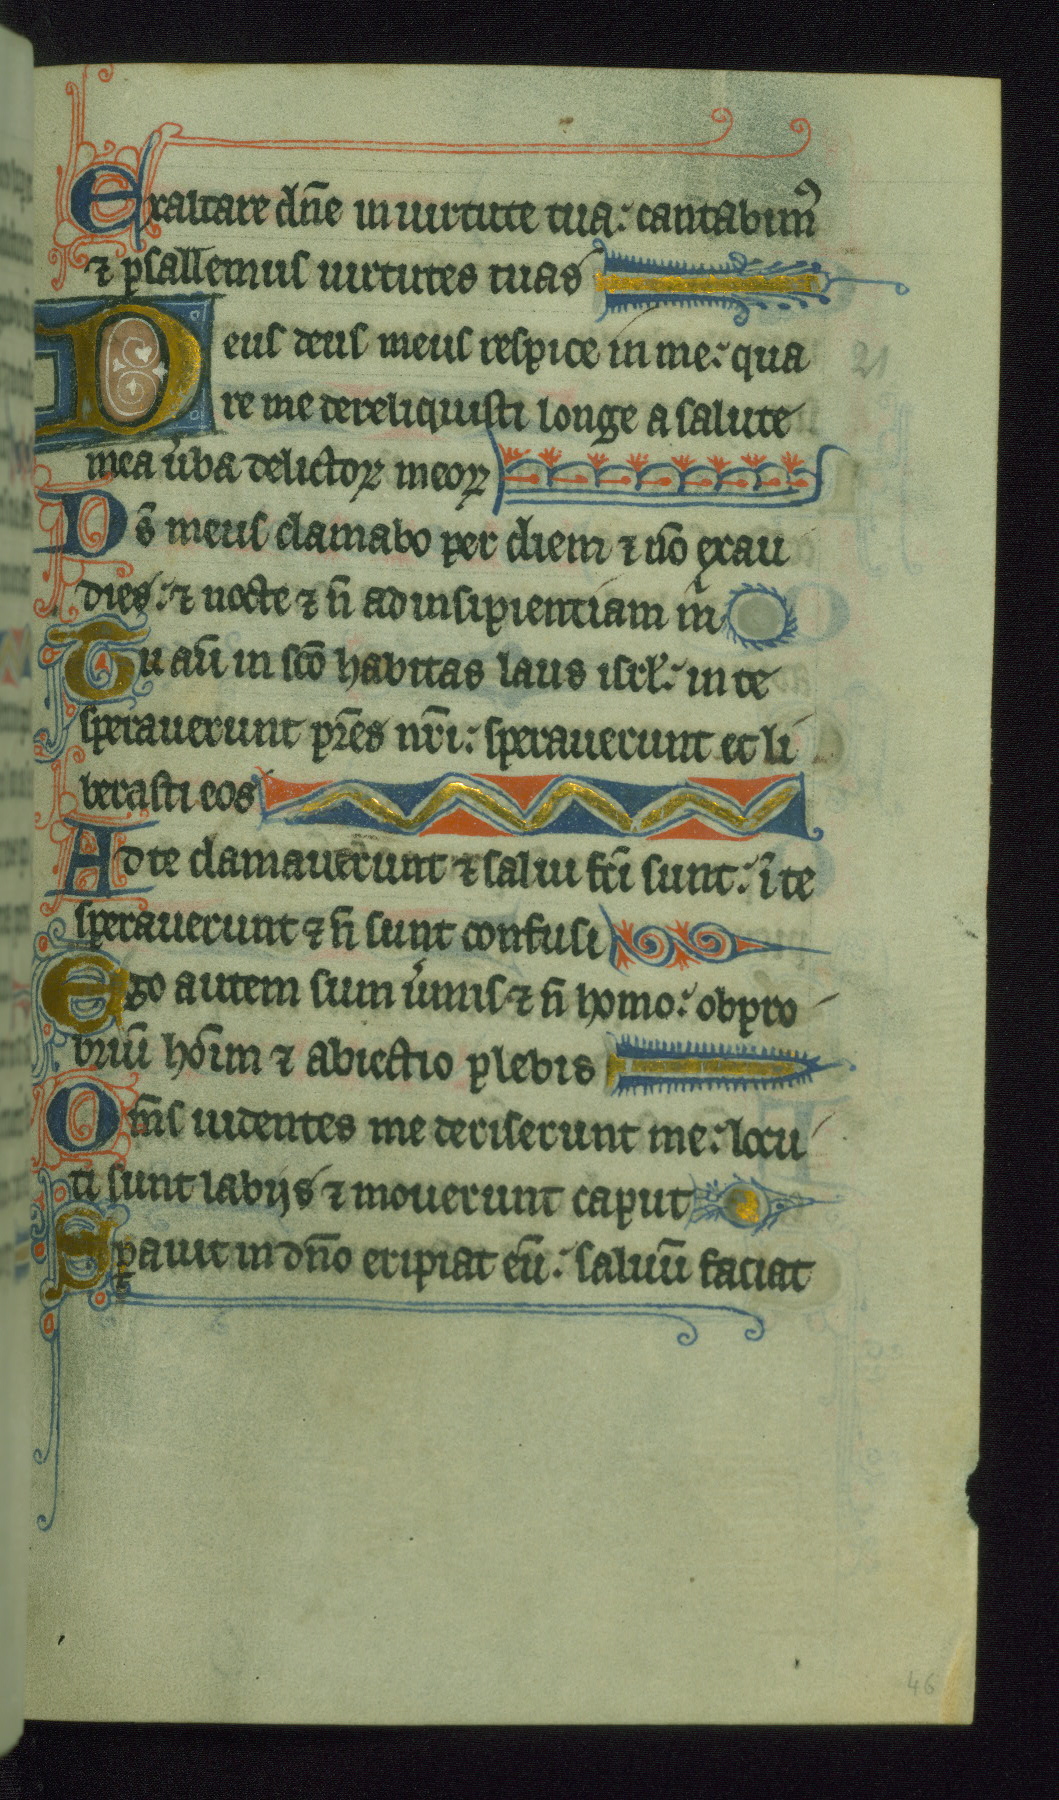 Exaltare dn̄e in uirtute tua: cantabim᷒
⁊ psallemus uirtutes tuas
Deus deus meus respice in me: qua
21
re me dereliquisti longe a salute
mea u̾ba delictoꝝ meoꝝ
Ds̄ meus clamabo per diem ⁊ nō exau
dies: ⁊ nocte ⁊ n̄ ad insipientiam m̄
Tu aū in sc̄o habitas laus isrl̄: in te
sperauerunt pr̄es nr̄i: sperauerunt et li
berasti eos
Ad te clamauerunt ⁊ salui fc̄i sunt: ī te
sperauerunt ⁊ n̄ sunt confusi
Ego autem sum u̾mis ⁊ n̄ homo: obpro
briū hoīm ⁊ abiectio plebis
Om̄s uidentes me deriserunt me: locu
ti sunt labijs ⁊ mouerunt caput
Sꝑauit in dn̄o eripiat eū: saluū faciat
46